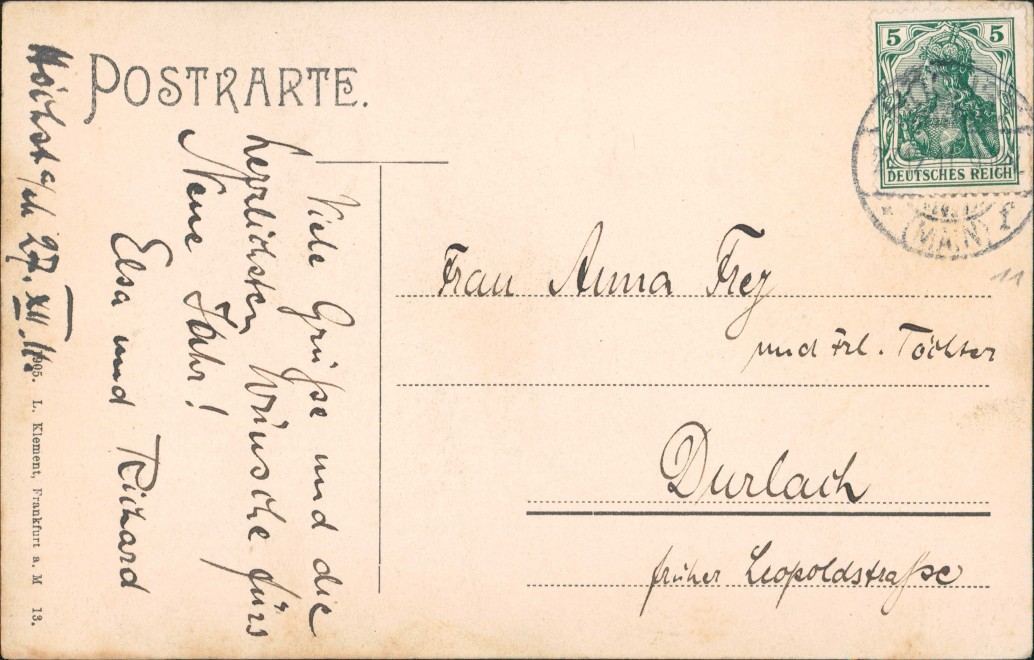 POSTKARTE.
Höchst a/M 27. XII. 11.
Viele Grüße und die
herzlichsten Wünsche fürs
Neue Jahr!
Elsa und Richard
5 5
DEUTSCHES REICH
(MAIN) f
11
Frau Anna Frey
und Frl. Töchter
Durlach
früher Leopoldstraße
1905. L. Klement, Frankfurt a. M 13.